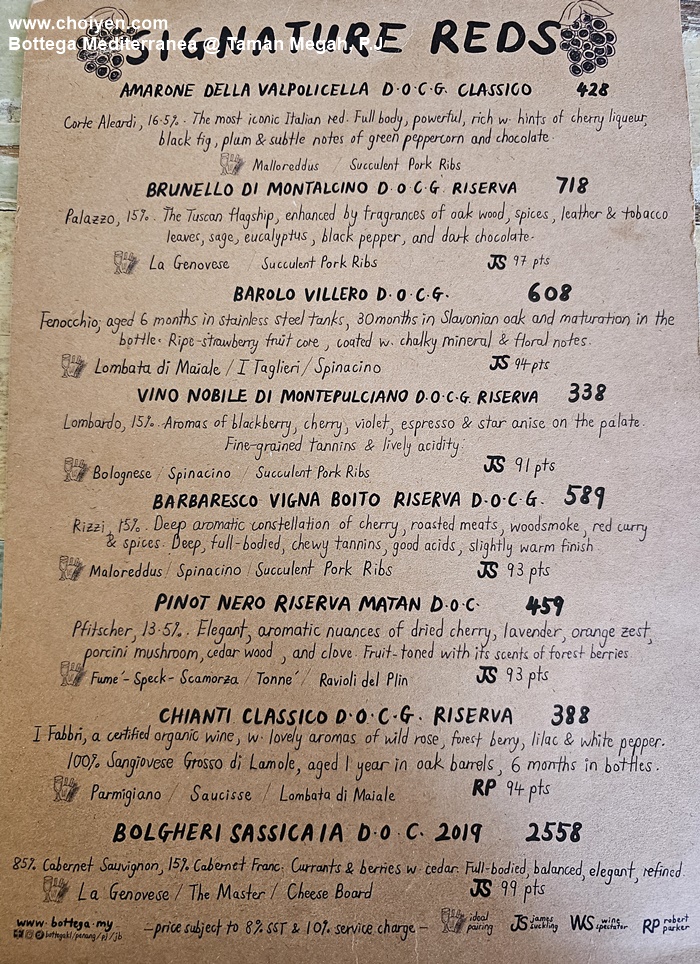 www.choiyen.com
Bottega Mediterranea @ Taman Megah, PJ
SIGNATURE REDS
AMARONE DELLA VALPOLICELLA D·O·C·G. CLASSICO 428
Corte Aleardi, 16.5%. The most iconic Italian red. Full body, powerful, rich w. hints of cherry liqueur,
black fig, plum & subtle notes of green peppercorn and chocolate.
Malloreddus / Succulent Pork Ribs
BRUNELLO DI MONTALCINO D·O·C·G. RISERVA 718
Palazzo, 15%. The Tuscan flagship, enhanced by fragrances of oak wood, spices, leather & tobacco
leaves, sage, eucalyptus, black pepper, and dark chocolate.
La Genovese Succulent Pork Ribs JS 97 pts
BAROLO VILLERO D·O·C·G. 608
Fenocchio; aged 6 months in stainless steel tanks, 30 months in Slavonian oak and maturation in the
bottle. Ripe-strawberry fruit core, coated w. chalky mineral & floral notes.
Lombata di Maiale / I Taglieri / Spinacino JS 94 pts
VINO NOBILE DI MONTEPULCIANO D·O·C·G. RISERVA 338
Lombardo, 15%. Aromas of blackberry, cherry, violet, espresso & star anise on the palate.
Fine-grained tannins & lively acidity.
Bolognese / Spinacino / Succulent Pork Ribs JS 91 pts
BARBARESCO VIGNA BOITO RISERVA D·O·C·G. 589
Rizzi, 15%. Deep aromatic constellation of cherry, roasted meats, woodsmoke, red curry
& spices. Deep, full-bodied, chewy tannins, good acids, slightly warm finish.
Maloreddus / Spinacino / Succulent Pork Ribs JS 93 pts
PINOT NERO RISERVA MATAN D·O·C· 459
Pfitscher, 13.5%. Elegant, aromatic nuances of dried cherry, lavender, orange zest,
porcini mushroom, cedar wood, and clove. Fruit-toned with its scents of forest berries.
Fume'-Speck-Scamorza / Tonne' / Ravioli del Plin JS 93 pts
CHIANTI CLASSICO D·O·C·G. RISERVA 388
I Fabbri, a certified organic wine, w. lovely aromas of wild rose, forest berry, lilac & white pepper.
100% Sangiovese Grosso di Lamole, aged 1 year in oak barrels, 6 months in bottles.
Parmigiano / Saucisse / Lombata di Maiale RP 94 pts
BOLGHERI SASSICAIA D·O·C. 2019 2558
85% Cabernet Sauvignon, 15% Cabernet Franc. Currants & berries w. cedar. Full-bodied, balanced, elegant, refined.
La Genovese / The Master / Cheese Board JS 99 pts
www.bottega.my
bottegakl/penang/pj/jb
—price subject to 8% SST & 10% service charge—
ideal pairing JS james suckling WS wine spectator RP robert parker